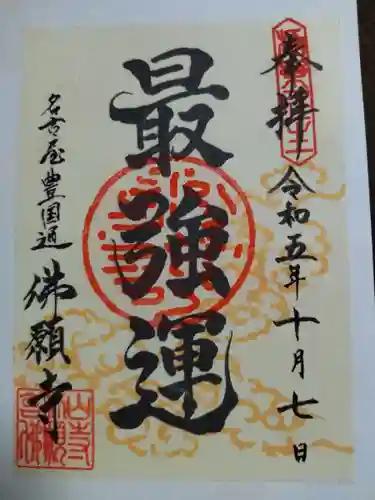 奉拝
令和五年十月七日
最強運
名古屋豊国通
佛願寺